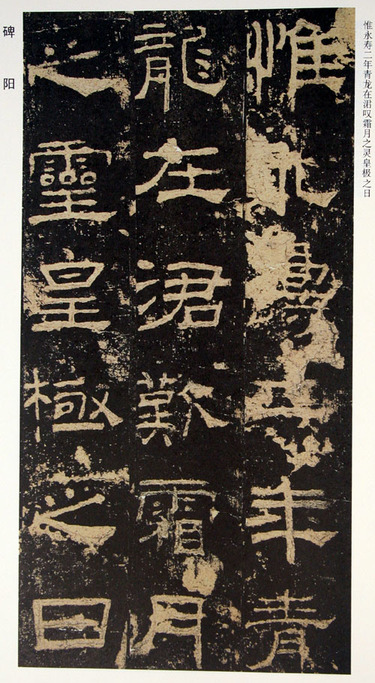 惟永寿二年青龙在涒叹霜月之灵皇极之日
惟永壽二年青
龍在涒歎霜月
之靈皇極之日
碑阳